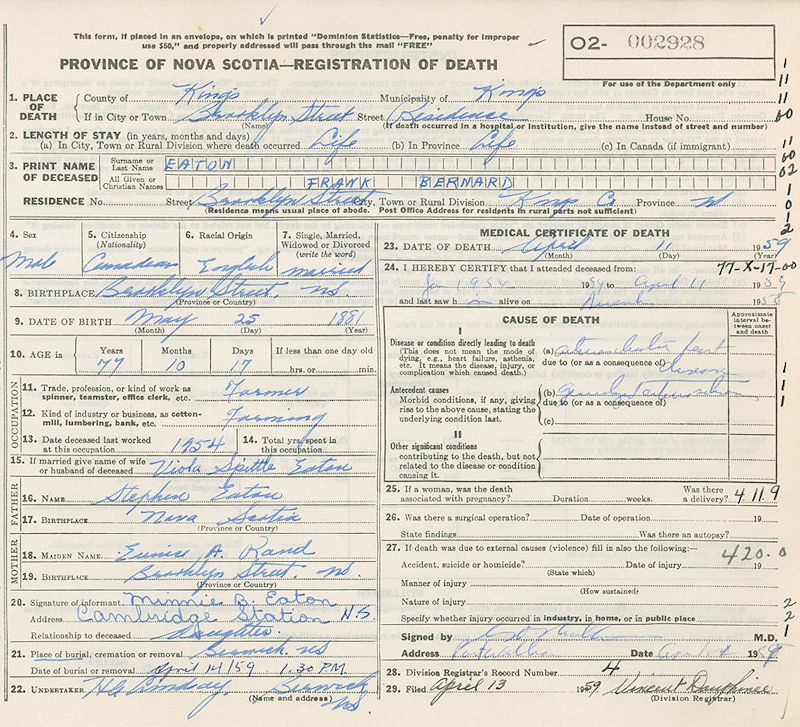 This form, if placed in an envelope, on which is printed "Dominion Statistics—Free, penalty for improper
use $50," and properly addressed will pass through the mail "FREE"
O2- 002928
PROVINCE OF NOVA SCOTIA—REGISTRATION OF DEATH
For use of the Department only
1. PLACE OF DEATH { County of Kings Municipality of Kings
If in City or Town Brooklyn Street Street Residence House No.
(Name) (If death occurred in a hospital or institution, give the name instead of street and number)
2. LENGTH OF STAY (in years, months and days)
(a) In City, Town or Rural Division where death occurred Life (b) In Province Life (c) In Canada (if immigrant)
3. PRINT NAME OF DECEASED { Surname or Last Name EATON
All Given or Christian Names FRANK BERNARD
RESIDENCE No. Street Brooklyn Street City, Town or Rural Division Kings Co Province NS
(Residence means usual place of abode. Post Office Address for residents in rural parts not sufficient)
4. Sex Male
5. Citizenship (Nationality) Canadian
6. Racial Origin English
7. Single, Married, Widowed or Divorced (write the word) married
8. BIRTHPLACE Brooklyn Street, NS.
(Province or Country)
9. DATE OF BIRTH May 25 1881
(Month) (Day) (Year)
10. AGE in Years 77 Months 10 Days 17 If less than one day old hrs. or min.
OCCUPATION
11. Trade, profession, or kind of work as spinner, teamster, office clerk, etc. Farmer
12. Kind of industry or business, as cotton-mill, lumbering, bank, etc. Farming
13. Date deceased last worked at this occupation 1954
14. Total yrs. spent in this occupation
15. If married give name of wife or husband of deceased Viola Spittle Eaton
FATHER
16. NAME Stephen Eaton
17. BIRTHPLACE Nova Scotia
(Province or Country)
MOTHER
18. MAIDEN NAME Eunice A. Rand
19. BIRTHPLACE Brooklyn Street, NS.
(Province or Country)
20. Signature of informant Minnie B. Eaton
Address Cambridge Station N.S.
Relationship to deceased Daughter
21. Place of burial, cremation or removal Berwick, NS
Date of burial or removal April 14/59 1.30 P.M.
22. UNDERTAKER Lindsay, Berwick NS.
(Name and address)
MEDICAL CERTIFICATE OF DEATH
23. DATE OF DEATH April 11 1959
(Month) (Day) (Year)
77-X-17-00
24. I HEREBY CERTIFY that I attended deceased from:
Jan 1954 1954 to April 11 1959
and last saw h m alive on 1958
CAUSE OF DEATH
Approximate interval between onset and death
I
Disease or condition directly leading to death
(This does not mean the mode of dying, e.g., heart failure, asthenia, etc. It means the disease, injury, or complication which caused death.)
(a) heart disease
due to (or as a consequence of)
Antecedent causes
Morbid conditions, if any, giving rise to the above cause, stating the underlying condition last.
(b) Generalized
due to (or as a consequence of)
(c)
II
Other significant conditions
contributing to the death, but not related to the disease or condition causing it.
25. If a woman, was the death associated with pregnancy? Duration weeks. Was there a delivery? 4119
26. Was there a surgical operation? Date of operation 19
State findings Was there an autopsy?
27. If death was due to external causes (violence) fill in also the following:— 420.0
Accident, suicide or homicide? Date of injury 19
(State which)
Manner of injury
(How sustained)
Nature of injury
Specify whether injury occurred in industry, in home, or in public place
Signed by M.D.
Address Port Williams Date 1959
28. Division Registrar's Record Number 4
29. Filed April 13 1959 Vincent
(Division Registrar)